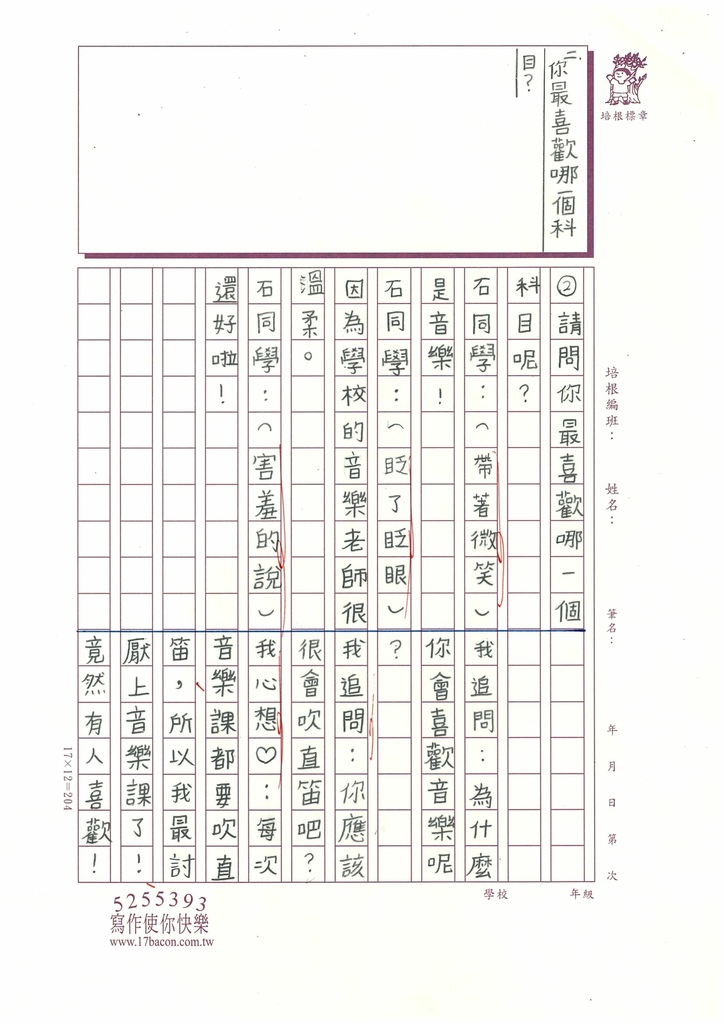 二、你最喜歡哪一個科
目？
培根標章
培根編班：
姓名：
筆名：
年 月 日 第 次
②請問你最喜歡哪一個
科目呢？
石同學：（帶著微笑）
是音樂！
石同學：（眨了眨眼）
因為學校的音樂老師很
溫柔。
石同學：（害羞的說）
還好啦！
我追問：為什麼
你會喜歡音樂呢
？
我追問：你應該
很會吹直笛吧？
我心想♡：每次
音樂課都要吹直
笛，所以我最討
厭上音樂課了！
竟然有人喜歡！
17×12=204
學校 年級
5255393
寫作使你快樂
www.17bacon.com.tw